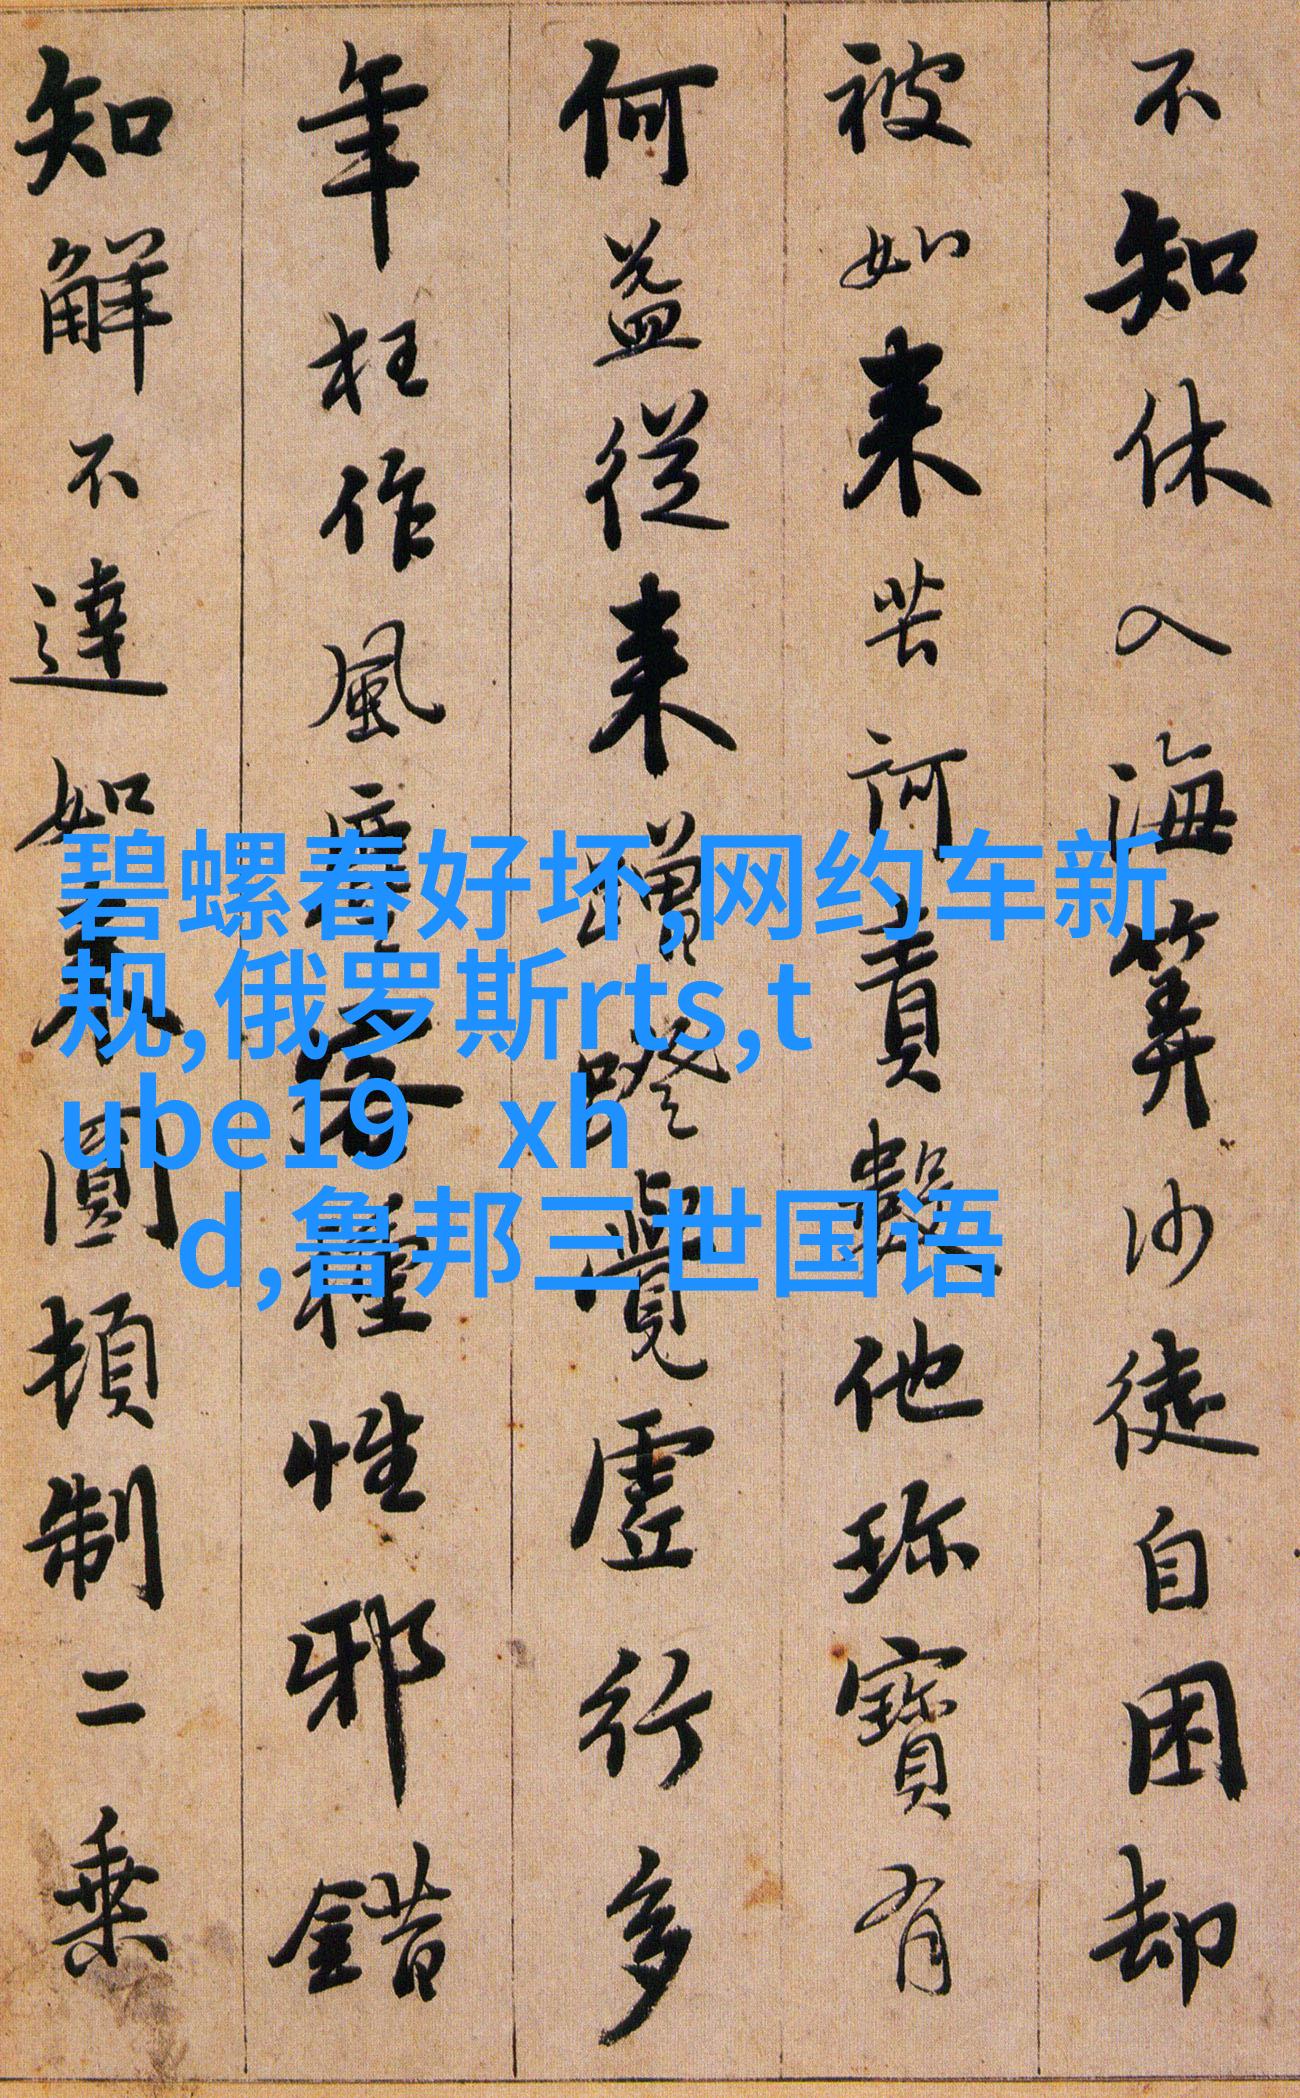 不知休入海筭沙徒自困却
被如来苦訶責數他珎寶有
何益從来蹭蹬覺虛行多
年枉作風塵客種性邪錯
知解不達如来圓頓制二乗
碧螺春好坏,网约车新
规,俄罗斯rts,t
ube19 xh
d,鲁邦三世国语